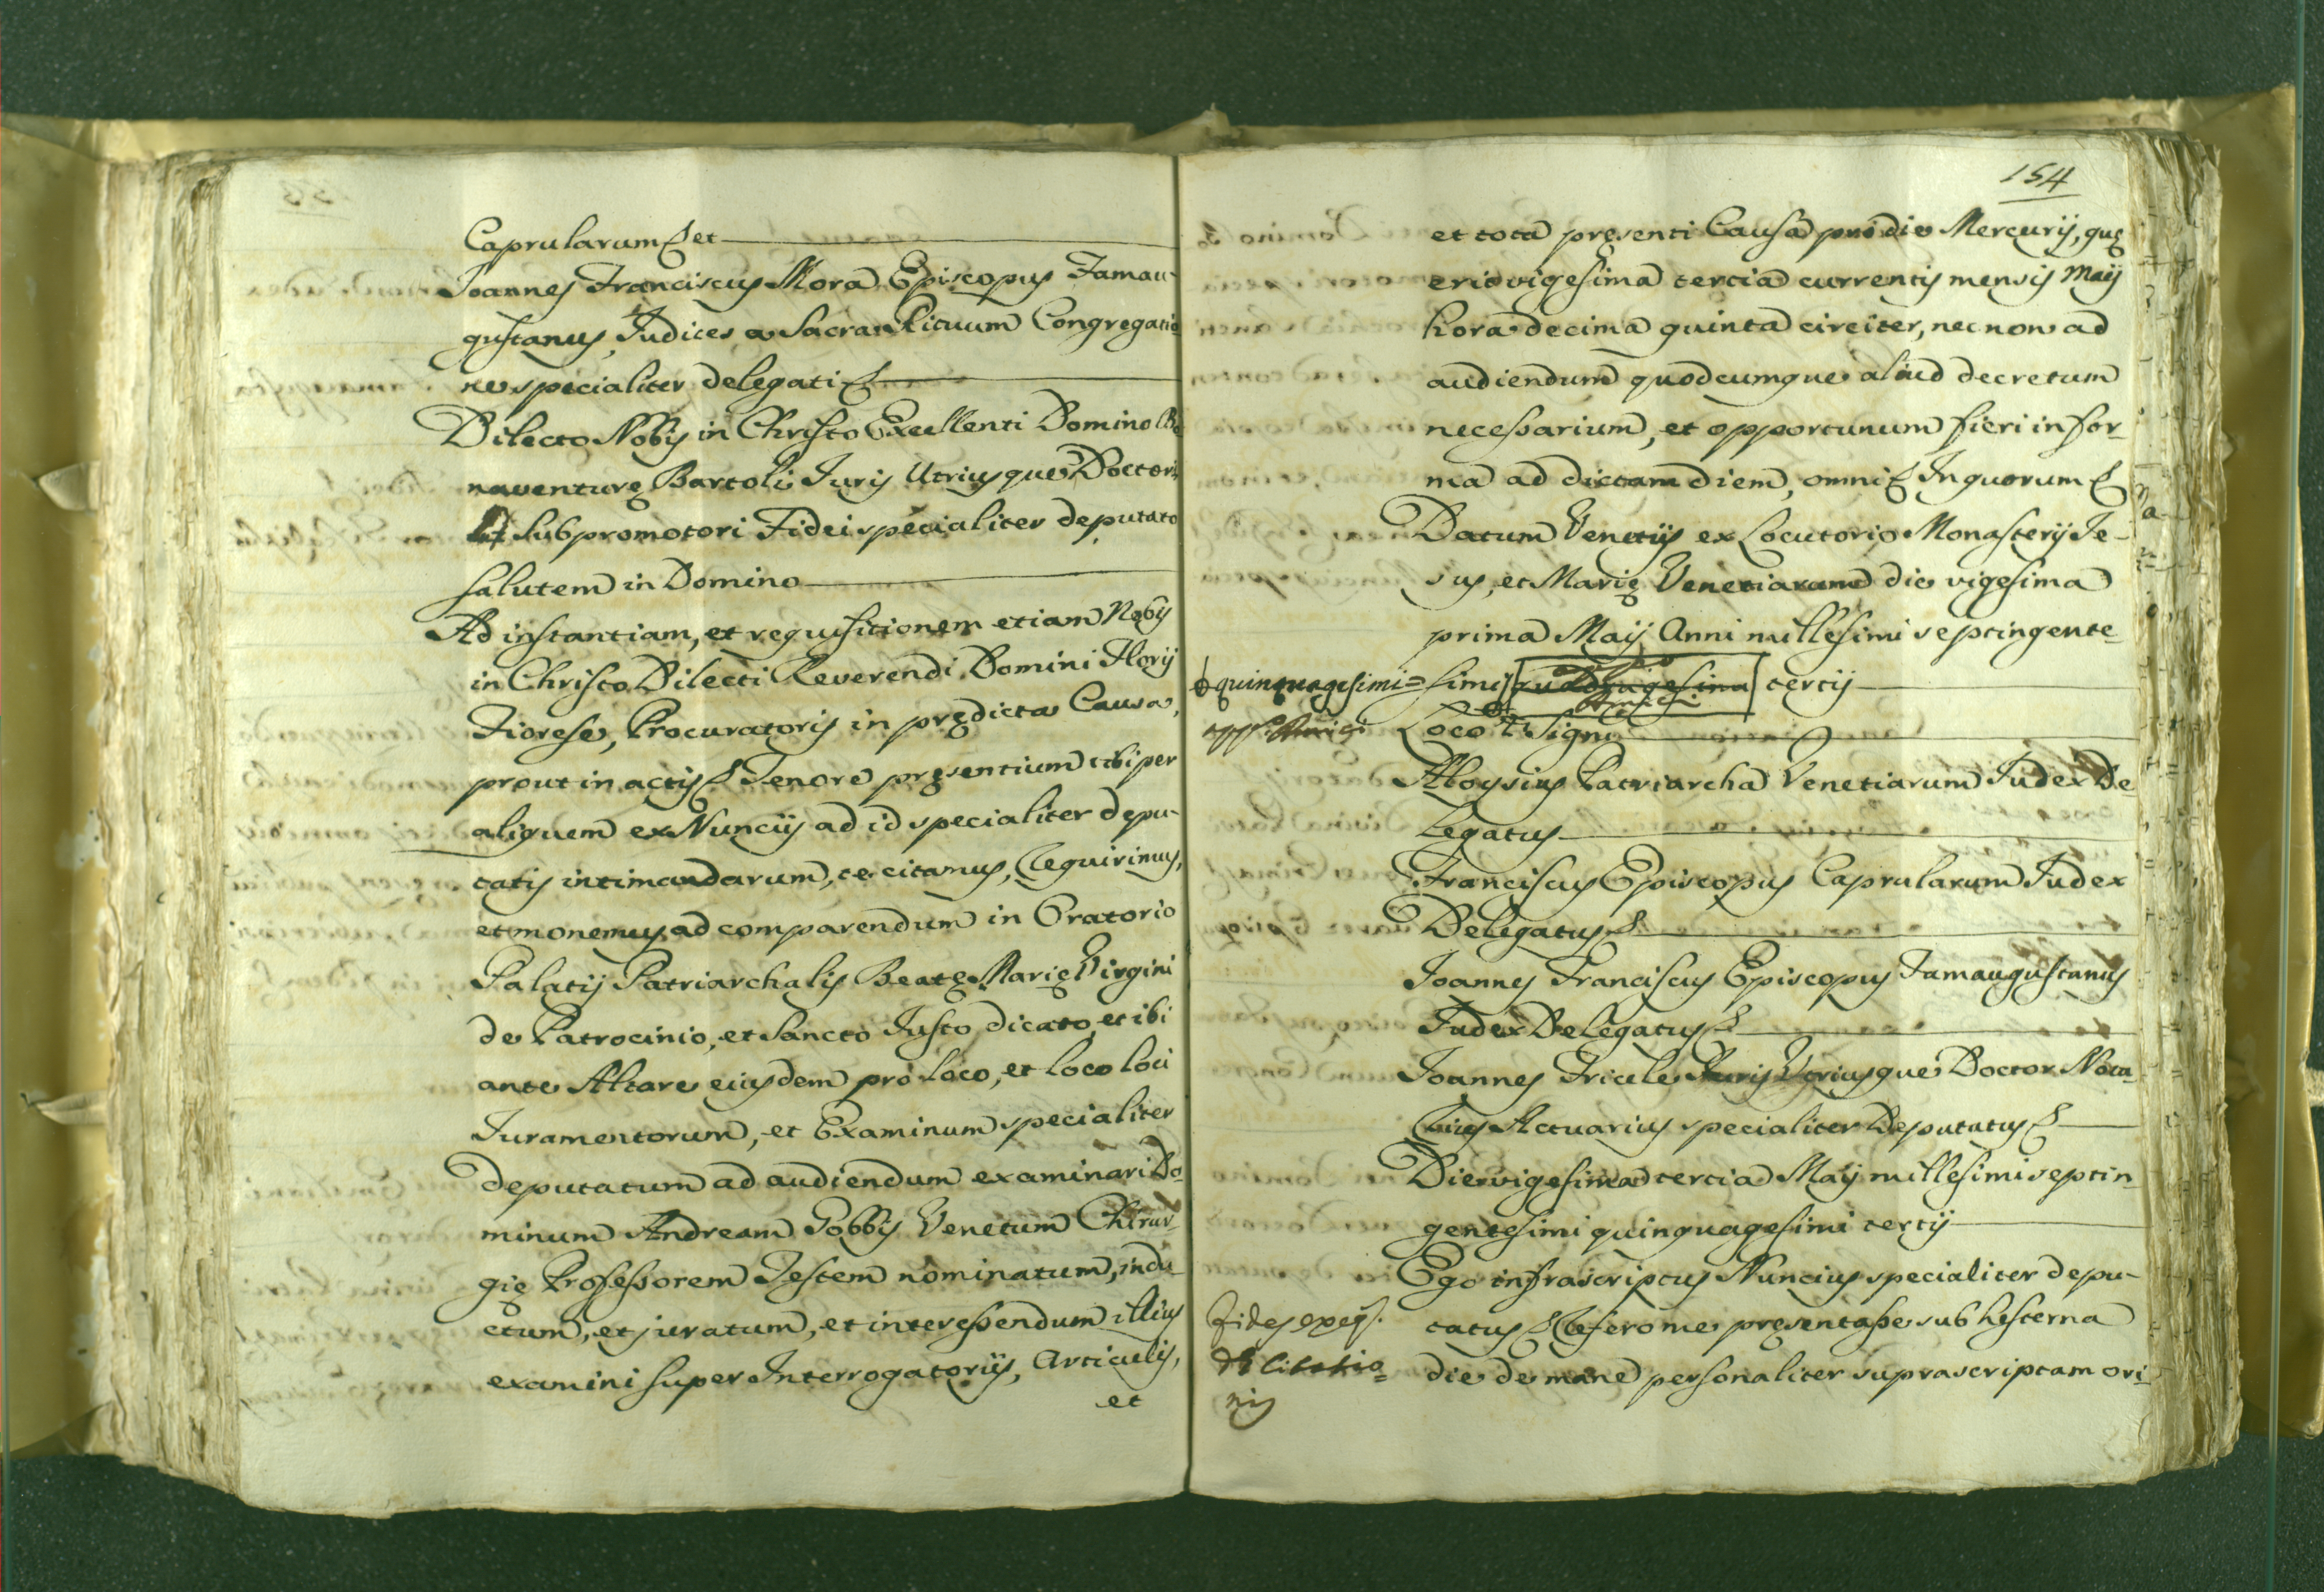 Caprularum & et
Joannes Franciscus Mora Episcopus Famau-
gustanus, Judices a Sacra Rituum Congregatio
ne specialiter delegati &
Dilecto Nobis in Christo Excellenti Domino Bo
naventurę Bartoli Juris Utriusque Doctori,
Subpromotori Fidei specialiter deputato
salutem in Domino
Ad instantiam, et requisitionem etiam Nobis
in Christo Dilecti Reverendi Domini Florij
Fiorese, Procuratoris in prędicta Causa,
prout in actis & Tenore pręsentium tibi per
aliquem ex Nuncijs ad id specialiter depu-
tatis intimandarum, te citamus, Requirimus,
et monemus ad comparendum in Oratorio
Palatij Patriarchalis Beatę Marię Virgini
de Patrocinio, et Sancto Justo dicato, et ibi
ante Altare eiusdem pro loco, et loco loci
Juramentorum, et Examinum specialiter
deputatum ad audiendum examinari Do-
minum Andream Gobbis Venetum Chirur-
gię Professorem Testem nominatum, indu-
ctum, et juratum, et interessendum illius
examini super Interrogatorijs, Articulis,
et
154
et tota pręsenti Causa pro die Mercurij, quę
erit vigesima tertia currentis mensis Maij
hora decima quinta circiter, nec non ad
audiendum quodcumque aliud decretum
necessarium, et opportunum fieri in for-
ma ad dictam diem, omni & In quorum &
Datum Venetijs ex Locutorio Monasterij Je-
sus, et Marię Venetiarum die vigesima
prima Maij Anni millesimi septingente-
quinquagesimi= simi quadragesima tertij
Loco + Signi
Aloysius Patriarcha Venetiarum Judex De
legatus
Franciscus Episcopus Caprularum Judex
Delegatus &
Joannes Franciscus Episcopus Famaugustanus
Judex Delegatus &
Joannes Juris Utriusque Doctor Nota-
rius Actuarius specialiter Deputatus &
Die vigesima tertia Maij millesimi septin
gentesimi quinquagesimi tertij
Ego infrascriptus Nuncius specialiter depu-
Fides
tatus & Refero me pręsentasse sub hesterna
Citatio=
die de mane personaliter suprascriptam ori-
nis